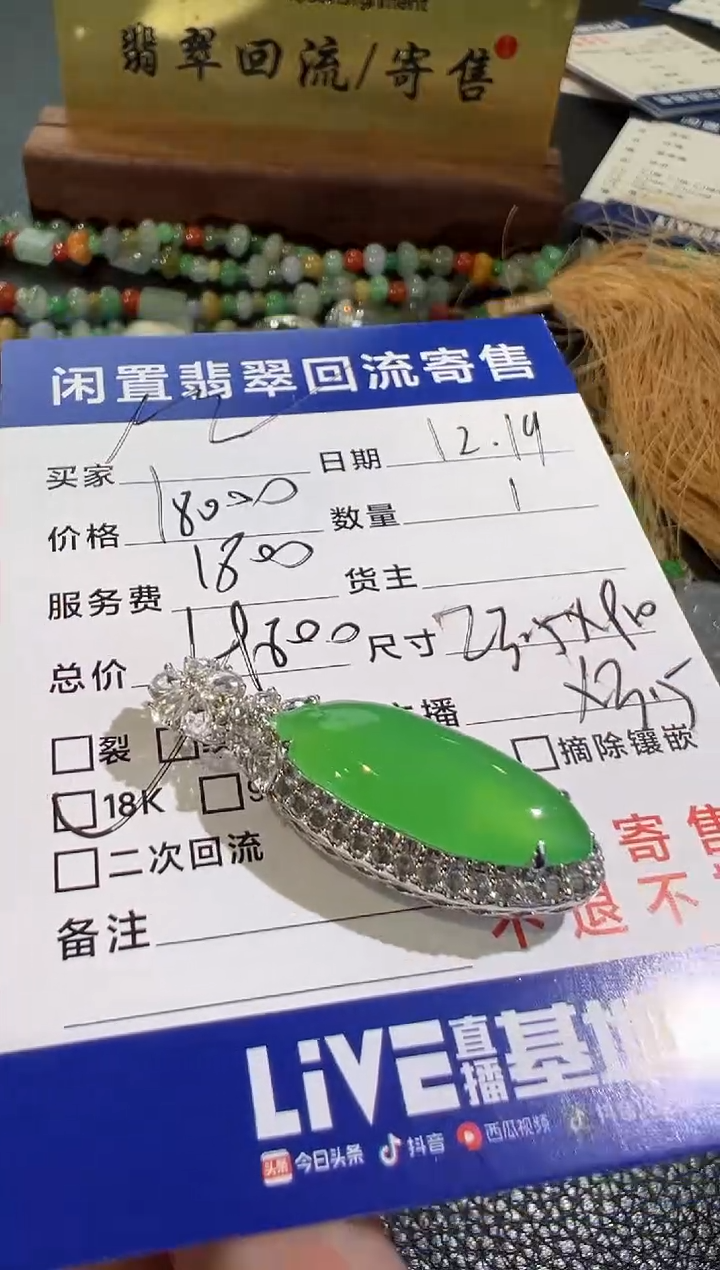 翡翠回流/寄售
闲置翡翠回流寄售
买家 日期 12.19
价格 18000 数量 1
服务费 1800 货主
总价 19800 尺寸
×3.5
播
裂 摘除镶嵌
18K 9
二次回流
寄售
备注 不退不
LiVE直播基地
头条 今日头条 抖音 西瓜视频